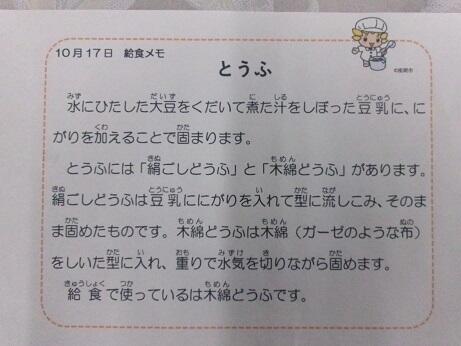 10月17日 給食メモ
とうふ
水にひたした大豆をくだいて煮た汁をしぼった豆乳に、に
がりを加えることで固まります。
とうふには「絹ごしどうふ」と「木綿どうふ」があります。
絹ごしどうふは豆乳ににがりを入れて型に流しこみ、そのま
ま固めたものです。木綿どうふは木綿（ガーゼのような布）
をしいた型に入れ、重りで水気を切りながら固めます。
給食で使っているは木綿どうふです。